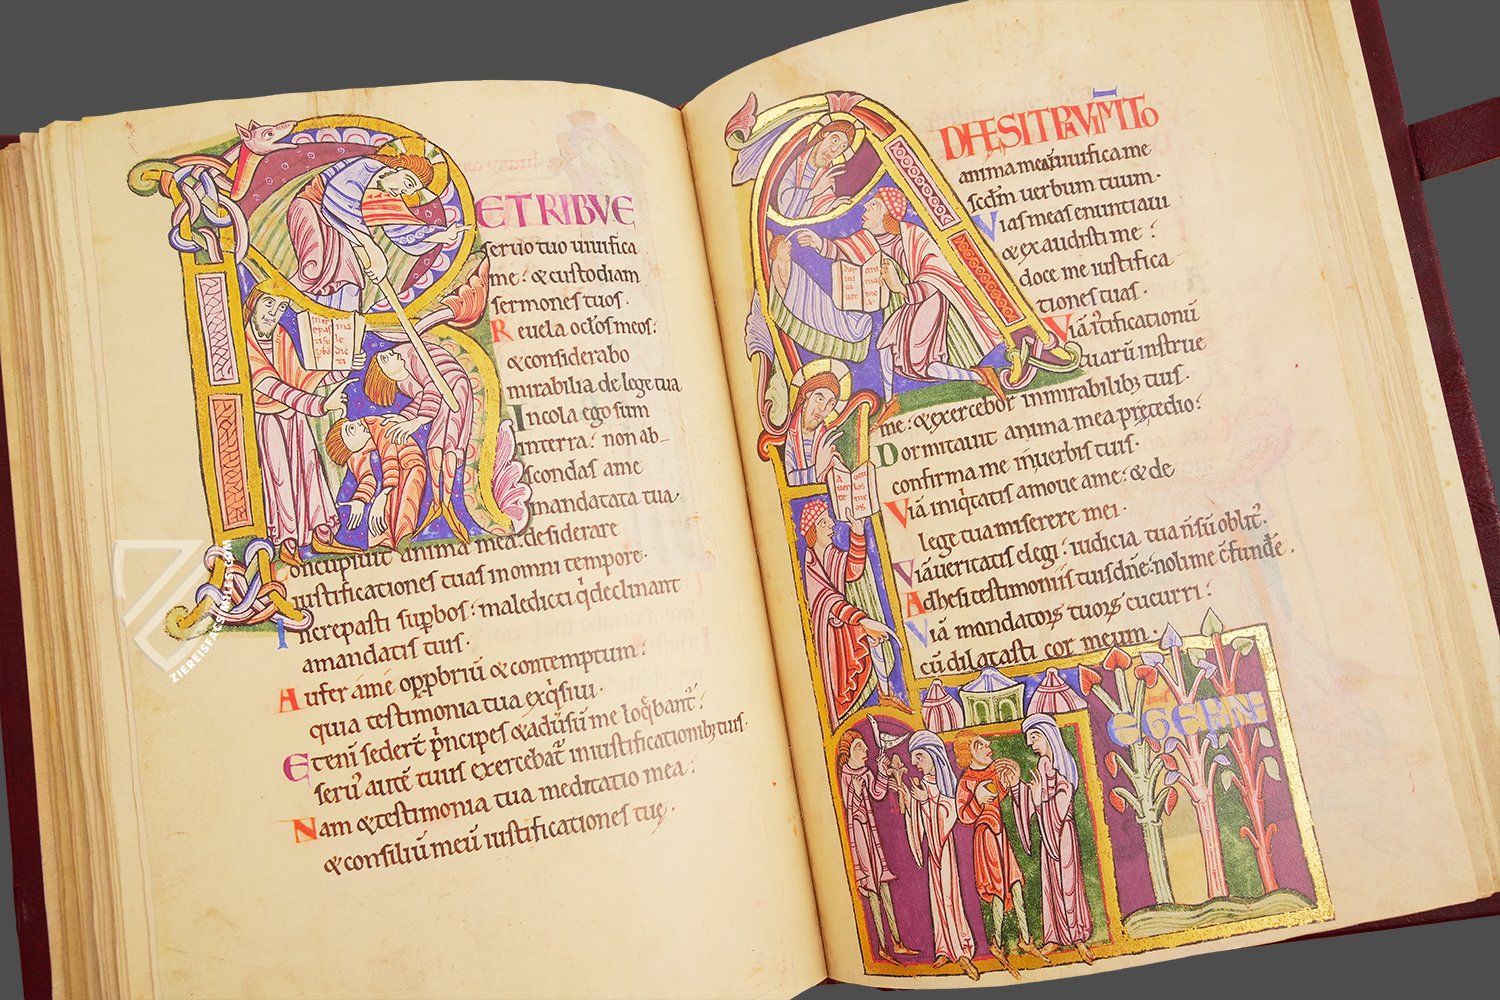 RETRIBVE
seruo tuo uiuifica
me: & custodiam
sermones tuos.
Reuela oclōs meos:
& considerabo
mirabilia de lege tua
Incola ego sum
interra: non ab-
scondas ame
mandatata tua.
Concupiuit anima mea: desiderare
iustificationes tuas inomni tempore.
Increpasti supbos: maledicti q declinant
amandatis tuis.
Aufer ame opprobriū & contemptum:
quia testimonia tua exqsiui.
Eteni sedert principes & adusum me loqbant:
seru aute tuus exercebat iniustificationib; tuis.
Nam & testimonia tua meditatio mea:
& consiliū meū iustificationes tuę.
incre
pas
ti su
pbos
ma
le
dic
ti
ZIEREISFACSIMILES.COM
ADHESIT PAVIMTO
anima mea: uiuifica me
scdm uerbum tuum.
Vias meas enuntiaui
& exaudisti me:
doce me iustifica
tiones tuas.
Viā iustificationū
tuarū instrue
me: & exercebor inmirabilib; tuis.
Dormitauit anima mea prętedio:
confirma me inuerbis tuis.
Viā iniqitatis amoue ame: & de
lege tua miserere mei.
Viā ueritatis elegi: iudicia tua nsū oblit.
Adhesi testimoniis tuis dne: noli me cfundere.
Viā mandatorū tuorū cucurri:
cū dilatasti cor meum.
dor
mi
ta
uit
ani
ma
me
a.
a
uer
te
ocu
los
me
os
EGEPONE